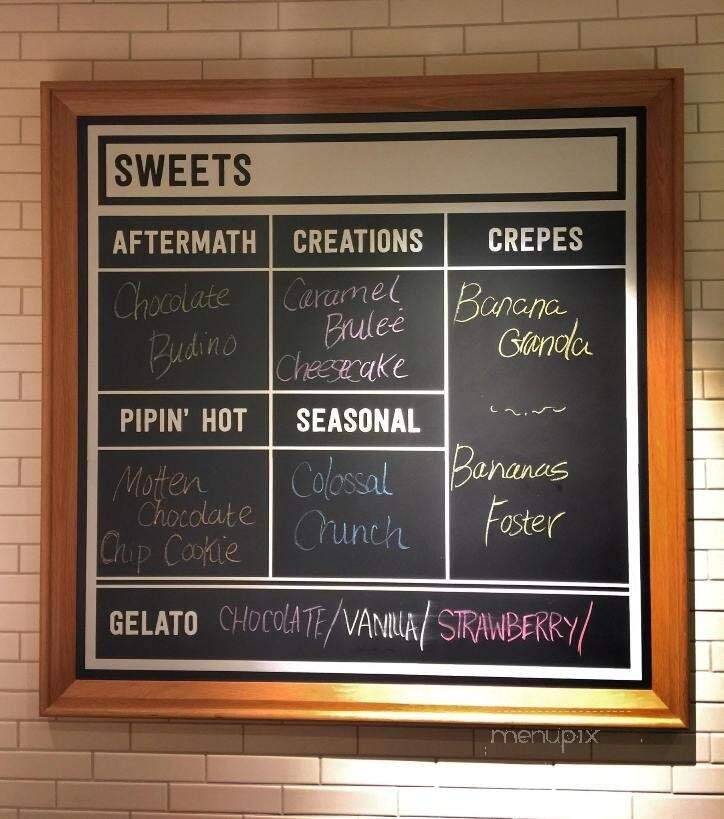 SWEETS
AFTERMATH
Chocolate
Budino
CREATIONS
Caramel
Brulee
Cheesecake
CREPES
Banana
Granola
Bananas
Foster
PIPIN' HOT
Molten
Chocolate
Chip Cookie
SEASONAL
Colossal
Crunch
GELATO CHOCOLATE/VANILLA/STRAWBERRY/
menupix